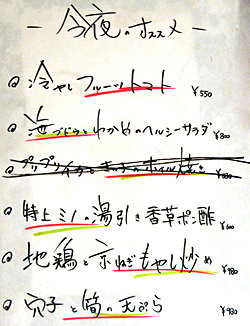 ― 今夜のオススメ ―
冷やしフルーツトマト ¥550
海ブドウとわかめのヘルシーサラダ ¥800
プリプリイカときのこのホイル焼き
特上ミノの湯引き香草ポン酢 ¥600
地鶏と京ねぎもやし炒め ¥980
穴子と筍の天ぷら ¥980